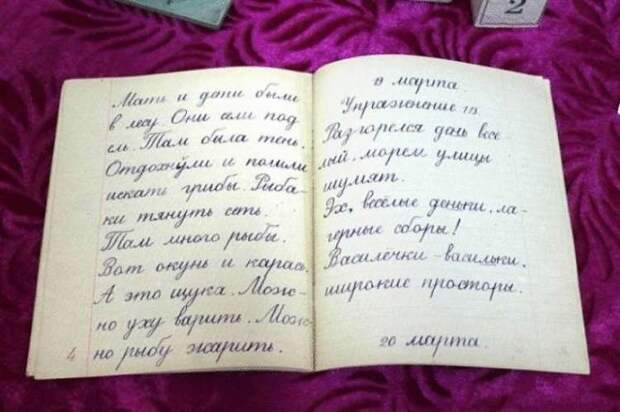 2
Мать и дети были
в лесу. Они сели под
ель. Там была тень.
Отдохнули и пошли
искать грибы. Рыба-
ки тянуть сеть.
Там много рыбы.
Вот окунь и карась.
А это щука. Мож-
но уху варить. Мож-
но рыбу жарить.
4
19 марта.
Упражнение
Разгорелся день весе
лый, морем улицы
шумят.
Эх, весёлые деньки, ла-
герные сборы!
Василёчки-васильки,
широкие просторы.
20 марта.